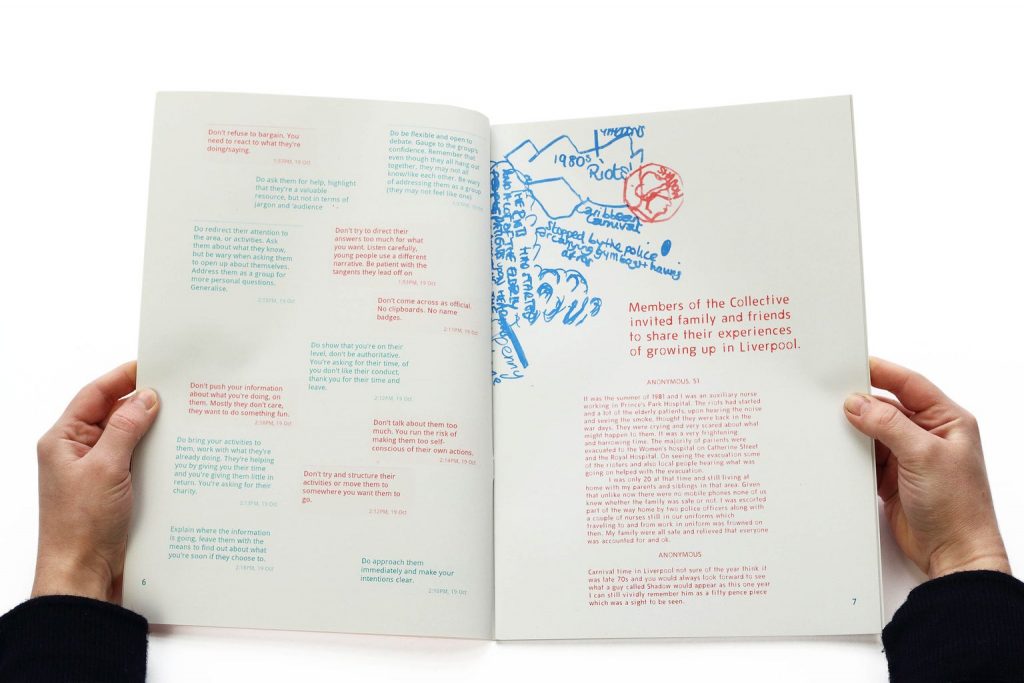 Don't refuse to bargain. You
need to react to what they're
doing/saying.
1:53PM, 19 Oct
Do be flexible and open to
debate. Gauge to the group's
confidence. Remember that
even though they all hang out
together, they may not all
know/like each other. Be wary
of addressing them as a group
(they may not feel like one)
Do ask them for help, highlight
that they're a valuable
resource, but not in terms of
jargon and 'audience
Do redirect their attention to
the area, or activities. Ask
them about what they know,
but be wary when asking them
to open up about themselves.
Address them as a group for
more personal questions.
Generalise.
2:13PM, 19 Oct
Don't try to direct their
answers too much for what
you want. Listen carefully,
young people use a different
narrative. Be patient with the
tangents they lead off on
1:51PM, 19 Oct
Don't come across as official.
No clipboards. No name
badges.
2:11PM, 19 Oct
Do show that you're on their
level, don't be authoritative.
You're asking for their time, of
you don't like their conduct,
thank you for their time and
leave.
2:12PM, 19 Oct
Don't push your information
about what you're doing, on
them. Mostly they don't care,
they want to do something fun.
2:14PM, 19 Oct
Don't talk about them too
much. You run the risk of
making them too self-
conscious of their own actions.
2:16PM, 19 Oct
Do bring your activities to
them, work with what they're
already doing. They're helping
you by giving you their time
and you're giving them little in
return. You're asking for their
charity.
2:13PM, 19 Oct
Don't try and structure their
activities or move them to
somewhere you want them to
go.
2:16PM, 19 Oct
Explain where the information
is going, leave them with the
means to find out about what
you're soon if they choose to.
2:18PM, 19 Oct
Do approach them
immediately and make your
intentions clear.
2:10PM, 19 Oct
6
1980s
Riots!
Caribbean
Carnival
stopped by the police
for carrying gym bags + having
afros
Members of the Collective
invited family and friends
to share their experiences
of growing up in Liverpool.
ANONYMOUS, 51
It was the summer of 1981 and I was an auxiliary nurse
working in Prince's Park Hospital. The riots had started
and a lot of the elderly patients, upon hearing the noise
and seeing the smoke, thought they were back in the
war days. They were crying and very scared about what
might happen to them. It was a very frightening
and harrowing time. The majority of patients were
evacuated to the Women's hospital on Catherine Street
and the Royal Hospital. On seeing the evacuation some
of the rioters and also local people hearing what was
going on helped with the evacuation.
I was only 20 at that time and still living at
home with my parents and siblings in that area. Given
that unlike now there were no mobile phones none of us
knew whether the family was safe or not. I was escorted
part of the way home by two police officers along with
a couple of nurses still in our uniforms which
traveling to and from work in uniform was frowned on
then. My family were all safe and relieved that everyone
was accounted for and ok.
ANONYMOUS
Carnival time in Liverpool not sure of the year think it
was late 70s and you would always look forward to see
what a guy called Shadow would appear as this one year
I can still vividly remember him as a fifty pence piece
which was a sight to be seen.
7